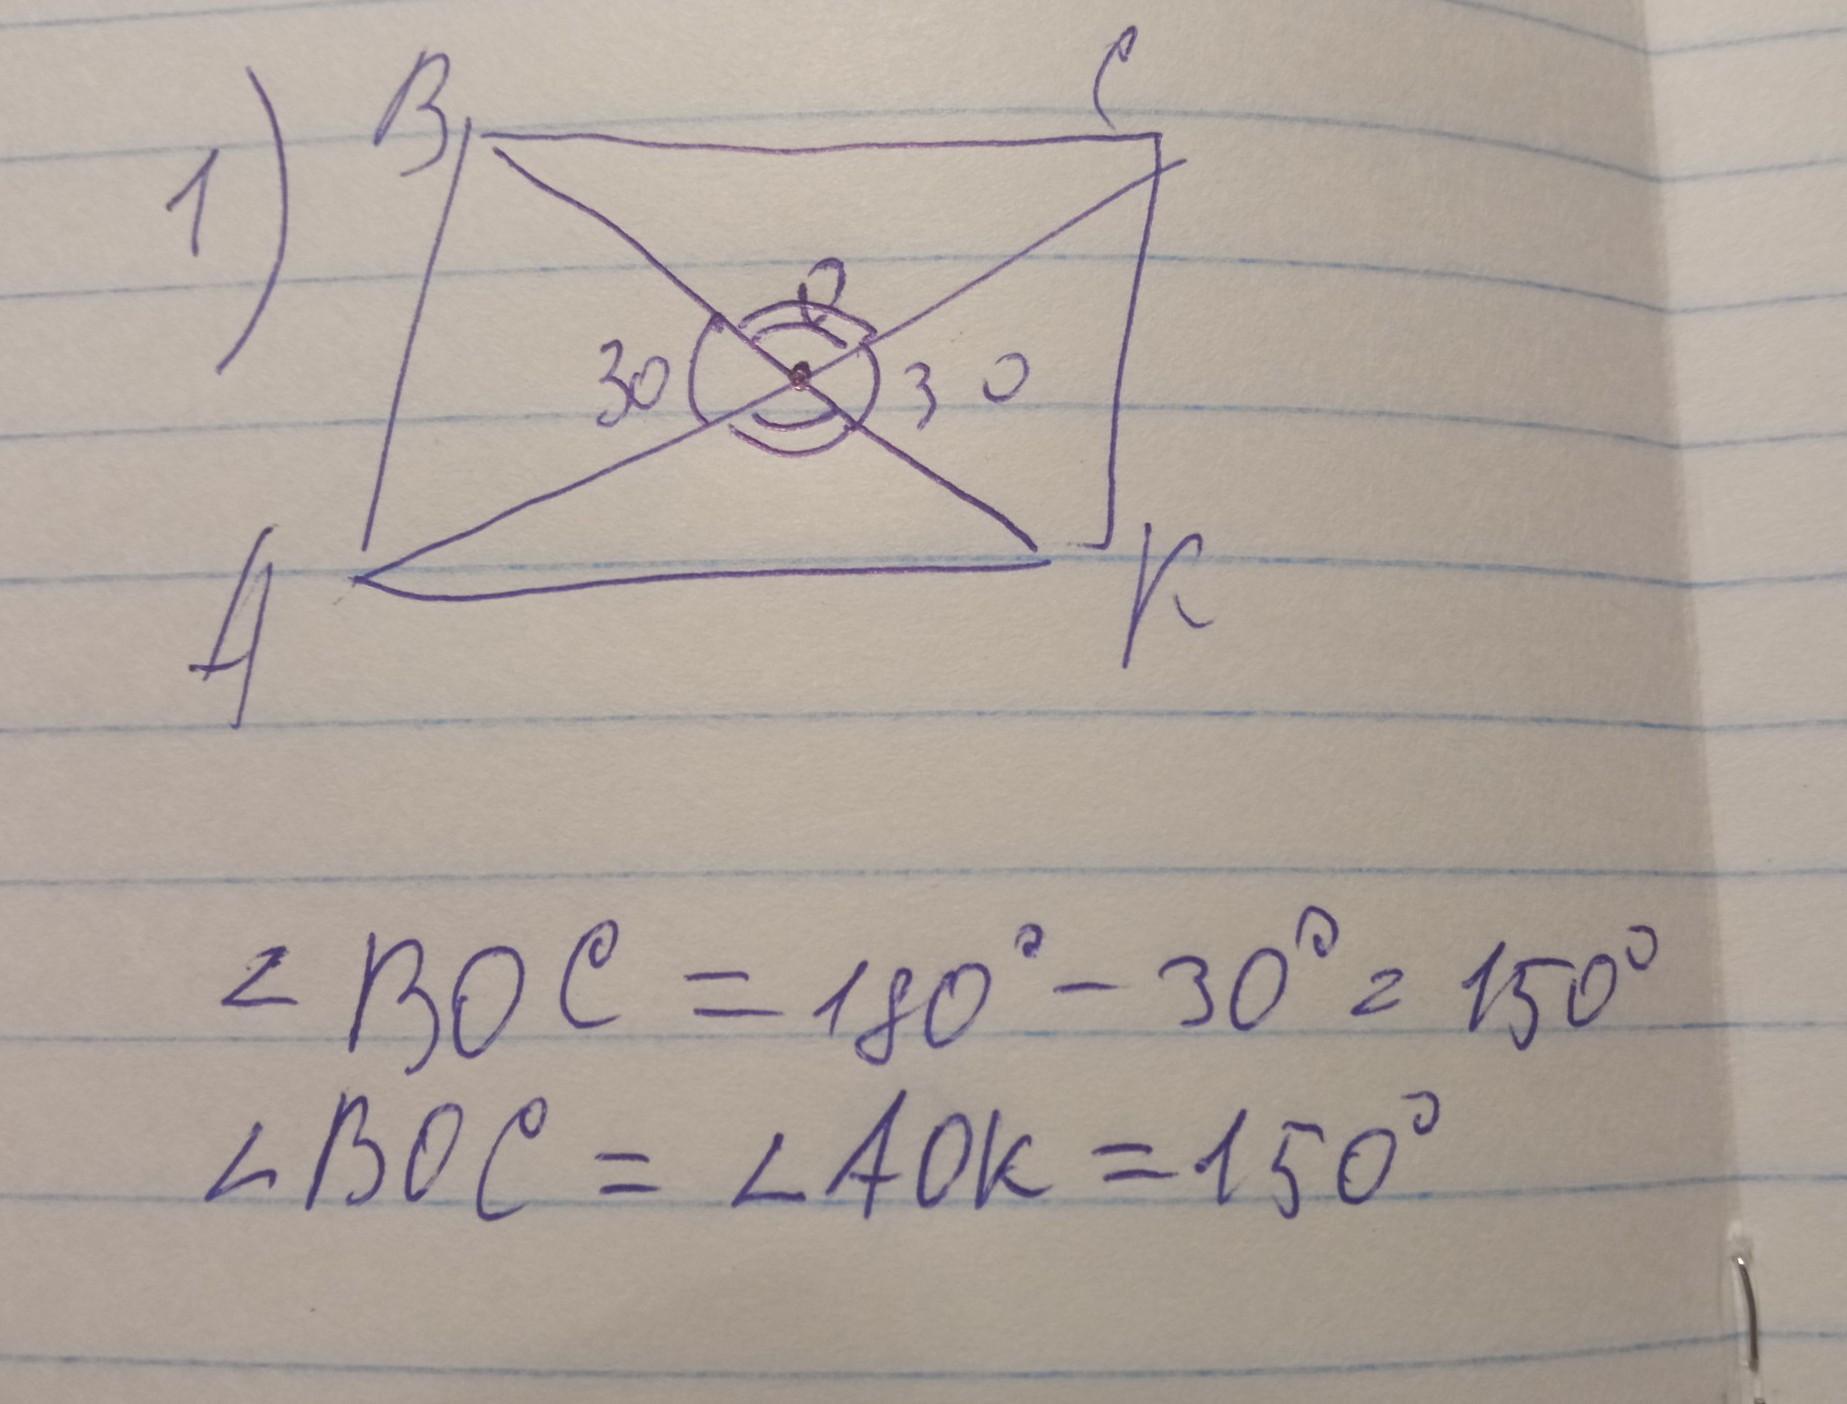 1)
B C
O
30 30
A K
∠BOC = 180° - 30° = 150°
∠BOC = ∠AOK = 150°